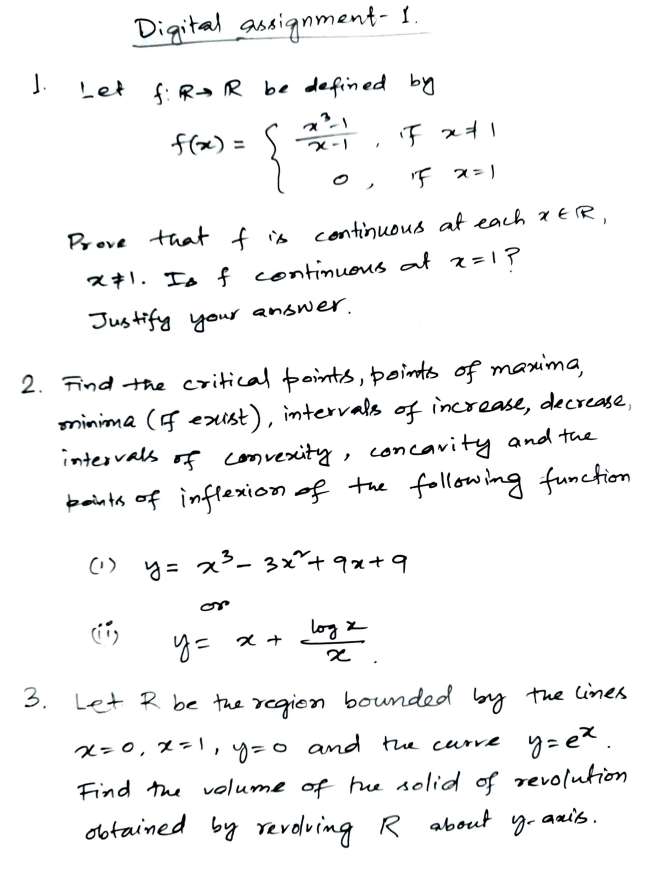 Digital assignment- 1.
1. Let f: R→ R be defined by
f(x) = { x³-1 / x-1 , if x≠1
0 , if x=1
Prove that f is continuous at each x ∈ R,
x≠1. Is f continuous at x=1?
Justify your answer.
2. Find the critical points, points of maxima,
minima (if exist), intervals of increase, decrease,
intervals of convexity, concavity and the
points of inflexion of the following function
(i) y = x³ - 3x² + 9x + 9
or
(ii) y = x + log x / x .
3. Let R be the region bounded by the lines
x=0, x=1, y=0 and the curve y=eˣ.
Find the volume of the solid of revolution
obtained by revolving R about y-axis.